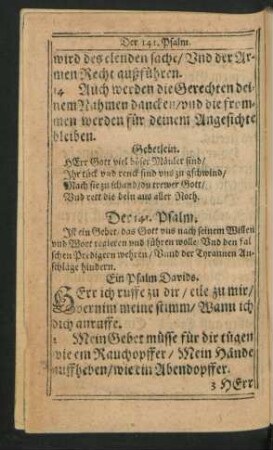 Der 141. Psalm.
wird des elenden sache/ Vnd der Ar-
men Recht außführen.
14 Auch werden die Gerechten dei-
nem Nahmen dancken/ vnd die from-
men werden für deinem Angesichte
bleiben.
Gebetlein.
HErr Gott viel böser Mäuler sind/
Ihr tück vnd renck sind vns zu gschwind/
Mach sie zu schand/ du trewer Gott/
Vnd rett die dein aus aller Noth.
Der 141. Psalm.
Ist ein Gebet/ das Gott vns nach seinem Willen
vnd Wort regieren vnd führen wolle/ Vnd den fal
schen Predigern wehren/ Vnnd der Tyrannen An-
schläge hindern.
Ein Psalm Davids.
HErr ich ruffe zu dir/ eile zu mir/
Vernim meine stimm/ Wann ich
dich anruffe.
2 Mein Gebet müsse für dir tügen
wie ein Rauchopffer/ Mein Hände
auffheben/ wie ein Abendopffer.
3 HErr